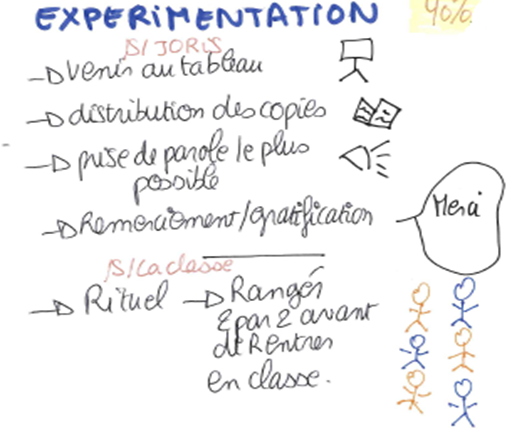 EXPERIMENTATION
90%
S/JORIS
venir au tableau
distribution des copies
prise de parole le plus
possible
Remerciement/gratification
Merci
S/La classe
Rituel → Rangés
2 par 2 avant
de Rentrer
en classe.